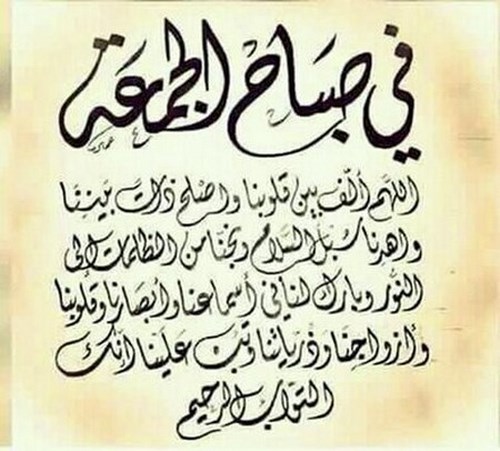 في صباح الجمعة
اللهم ألّف بين قلوبنا وأصلح ذات بيننا
واهدنا سبل السلام ونجّنا من الظلمات إلى
النور وبارك لنا في أسماعنا وأبصارنا وقلوبنا
وأزواجنا وذرياتنا وتب علينا إنك
التواب الرحيم